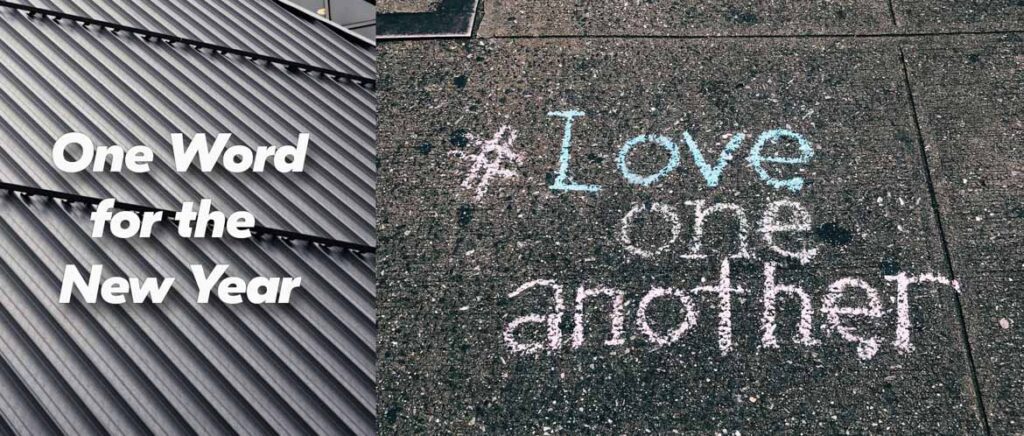 One Word
for the
New Year
# Love
one
another